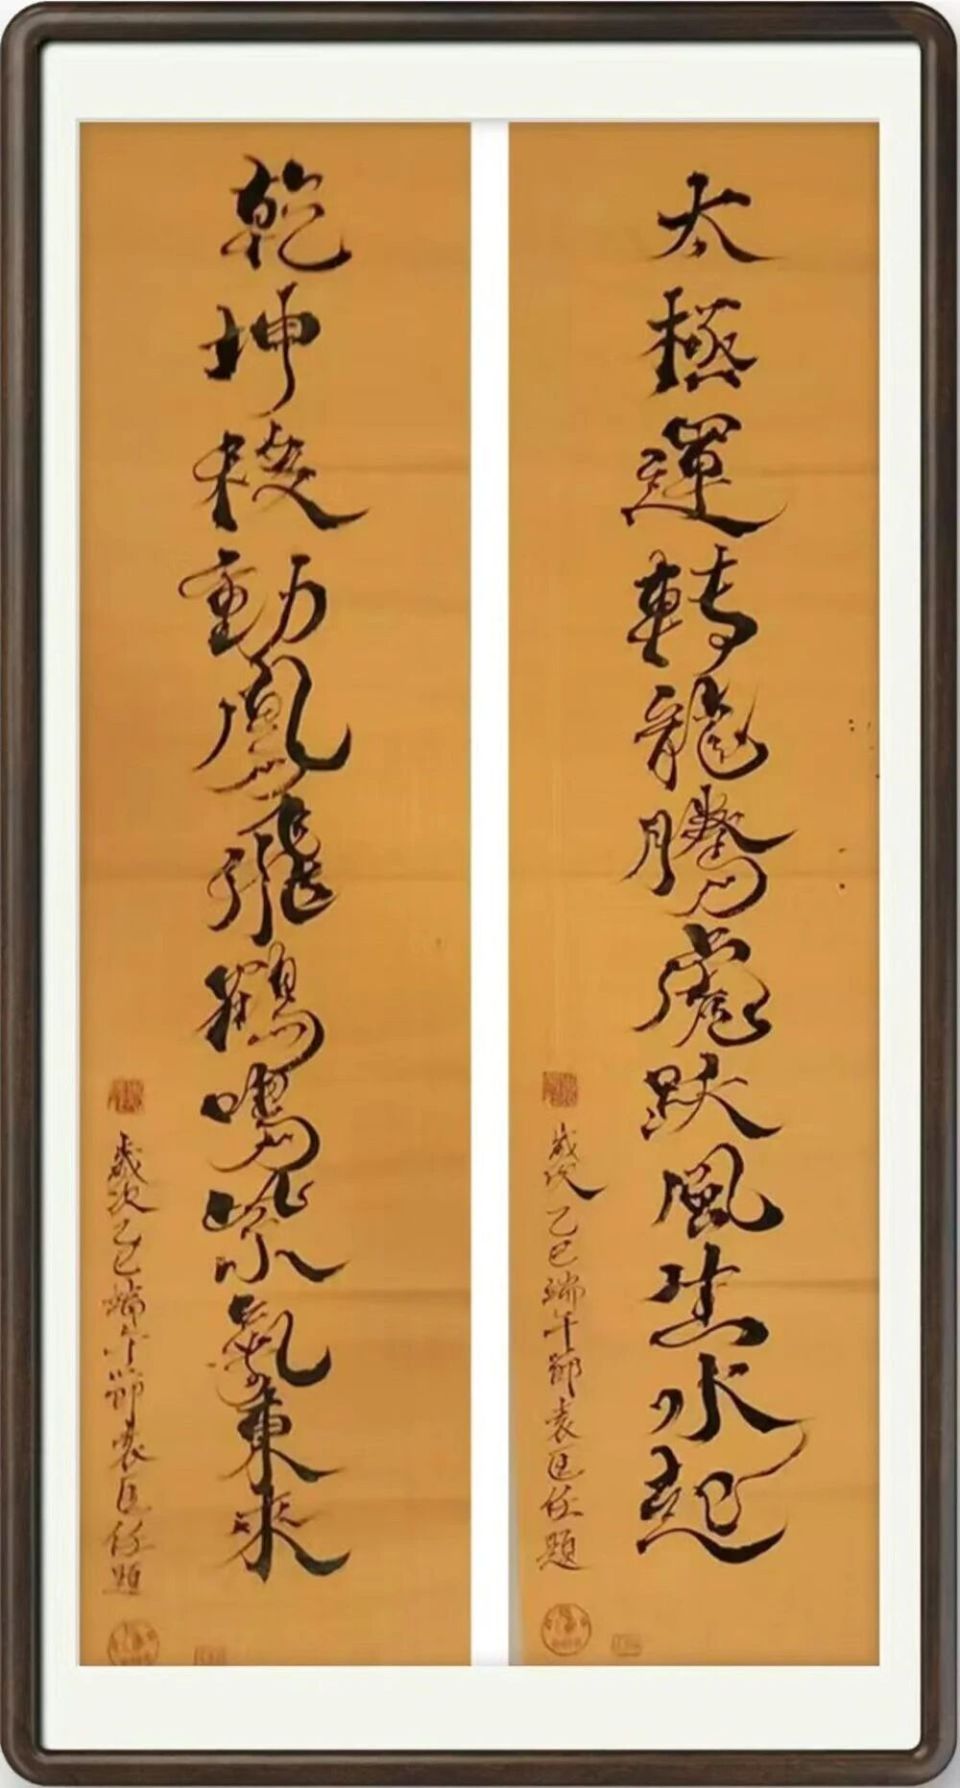 太極運轉龍騰虎跃風生水起
歲次乙巳端午節袁匡任題
乾坤動鳳飛鶴鳴紫氣東來
歲次乙巳端午節袁匡任題